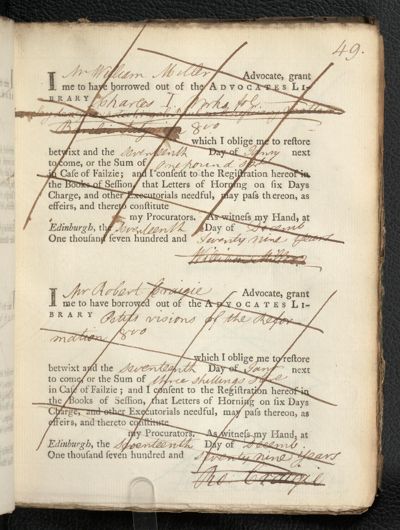 49.
I Mr William Miller Advocate, grant
me to have borrowed out of the ADVOCATES LI-
BRARY Charles I Works fol.
8vo
which I oblige me to restore
betwixt and the seventeenth Day of Janry next
to come, or the Sum of one pound
in Case of Failzie; and I consent to the Registration hereof in
the Books of Session, that Letters of Horning on six Days
Charge, and other Executorials needful, may pass thereon, as
effeirs, and thereto constitute
my Procurators. As witness my Hand, at
Edinburgh, the seventeenth Day of Decemb
One thousand seven hundred and twenty nine years
William Miller
I Mr Robert Craigie Advocate, grant
me to have borrowed out of the ADVOCATES LI-
BRARY Petits visions of the Refor
mation 8vo
which I oblige me to restore
betwixt and the seventeenth Day of Janry next
to come, or the Sum of three shillings
in Case of Failzie; and I consent to the Registration hereof in
the Books of Session, that Letters of Horning on six Days
Charge, and other Executorials needful, may pass thereon, as
effeirs, and thereto constitute
my Procurators. As witness my Hand, at
Edinburgh, the seventeenth Day of Decemb
One thousand seven hundred and twenty nine years
Ro Craigie